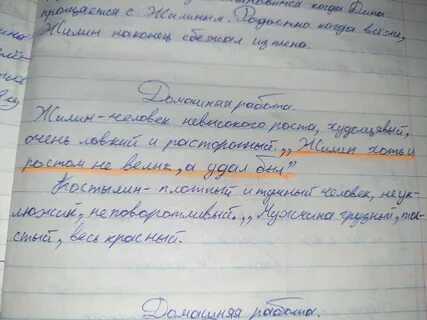 прощается с Жилиным. Радостно когда
Жилин наконец сбежал из плена.
Домашняя работа.
Жилин-человек невысокого роста, худощавый,
очень ловкий и расторопный. ,,Жилин хоть и
ростом не велик, а удал был"
Костылин- плотный и тучный человек, неук-
люжий, неповоротливый. ,,Мужчина грузный, тол-
стый, весь красный.
Домашняя работа.